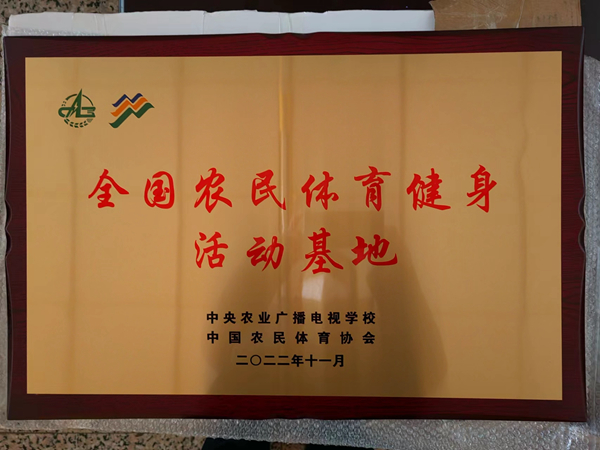 全国农民体育健身
活动基地
中央农业广播电视学校
中国农民体育协会
二〇二二年十一月